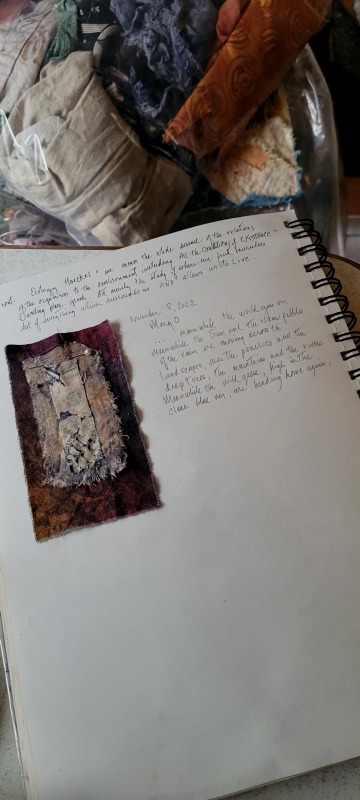 Ecology Haeckel "we mean the whole science of the relations
of the organism to the environment including all the conditions of existence"
cont.
Dwelling place, Greek for
the study of where we find ourselves
of everything which surrounds us AND allows us to live.
November 8, 2022
Mary O
... Meanwhile the world goes on
Meanwhile the Sun and the clear pebbles
of the rain are moving across the
Landscapes, over the prairies and the
deep Trees, the mountains and the rivers
Meanwhile the wild geese, high in the
clean blue air, are heading home again.